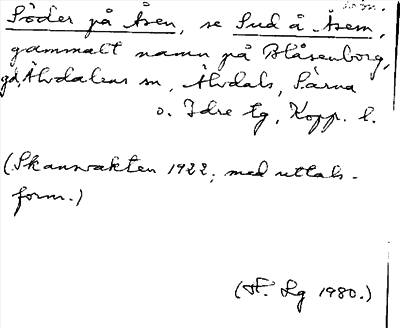 Söder på Åsen, se Sud å Åsem,
gammalt namn på Blåsenborg,
gd, Älvdalens sn, Älvdals, Särna
o. Idre tg, Kopp. l.
(Skansvakten 1922, med uttals-
form.)
(F. Lg 1980.)